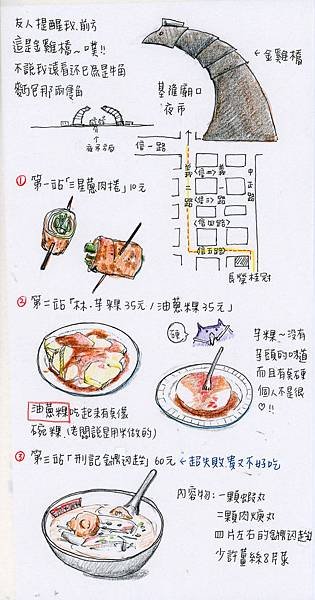 友人提醒我,前方
這是金雞橋~噗!!
不說我還看還以為是牛角
麵包那兩隻角
← 金雞橋
基隆廟口
夜市
夜市
信一路
義一路
信二路
信三路
信四路
信五路
中正路
長榮桂冠
① 第一站「三星蔥肉捲」10元
② 第二站「林.芋粿35元/油蔥粿35元」
芋粿~沒有
芋頭的味道
而且有點硬
個人不是很
♡!!
油蔥粿 吃起來有點像
碗粿(老闆說是用米做的)
③ 第三站「邢記鼎邊趖」60元 ← 超失敗貴又不好吃
內容物:一顆蝦丸
二顆肉焿丸
四片左右的鼎邊趖
少許薑絲&芹菜